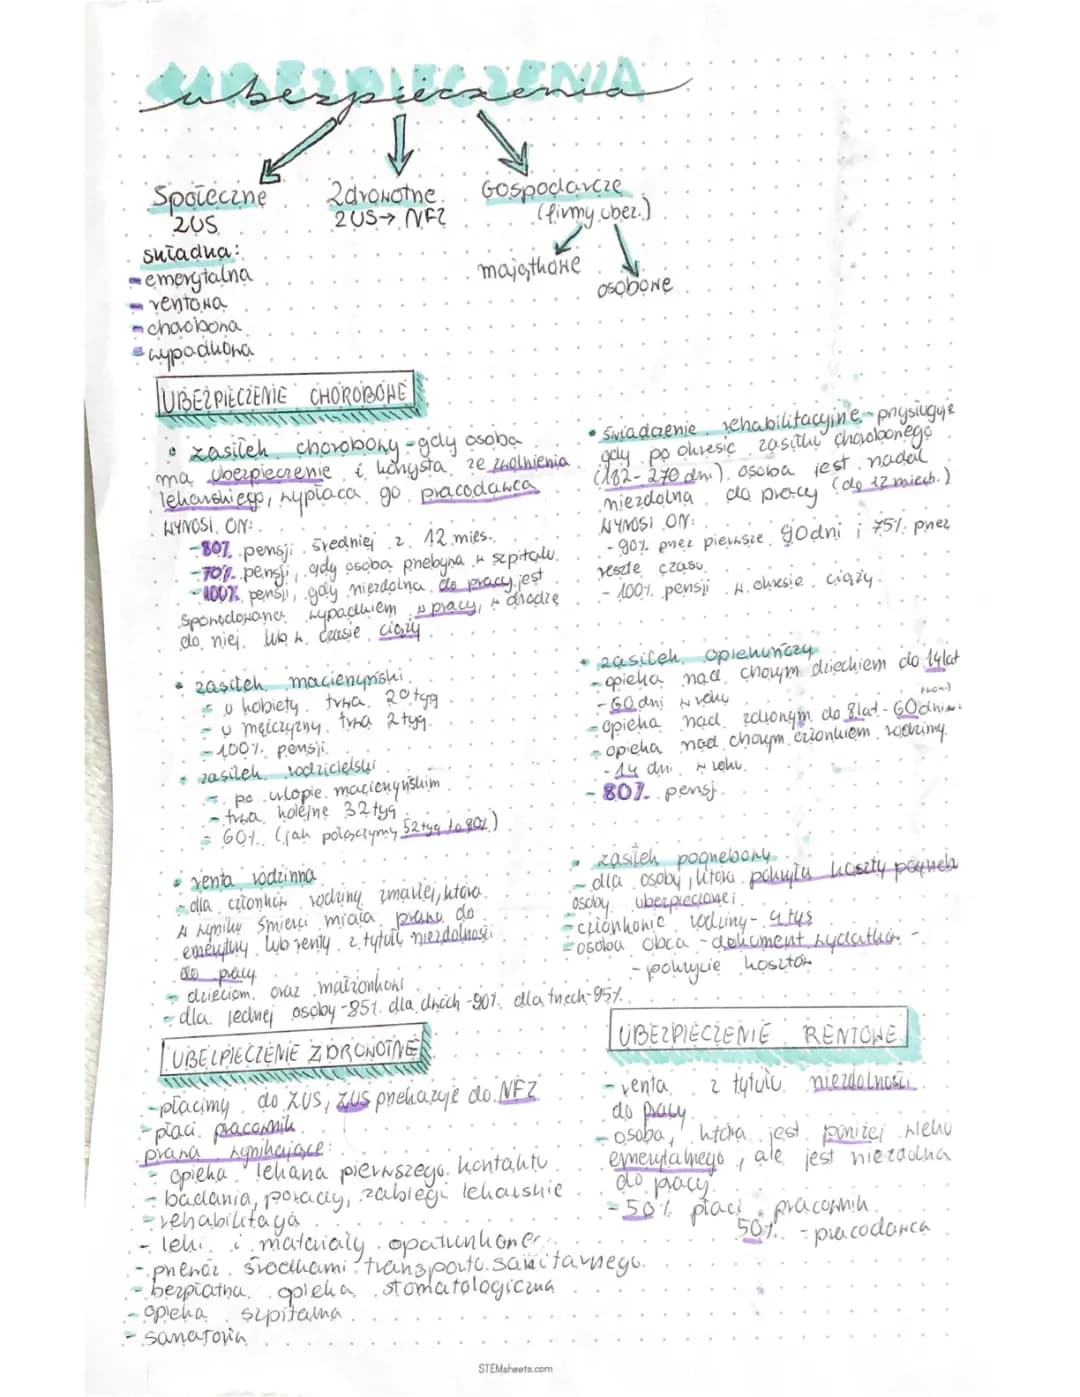 UBEZPIECZENIA
ubezpieczenia
Społeczne
ZUS
składka:
- emerytalna
- rentowa
- chorobowa
- wypadkowa
Zdrowotne
ZUS → NFZ
Gospodarcze
(firmy ubez.)
majątkowe
osobowe
UBEZPIECZENIE CHOROBOWE
• zasiłek chorobowy - gdy osoba
ma ubezpieczenie i korzysta ze zwolnienia
lekarskiego, wypłaca go pracodawca
WYNOSI ON:
- 80% pensji średniej z 12 mies.
- 70% pensji, gdy osoba przebywa w szpitalu
- 100% pensji, gdy niezdolna do pracy jest
spowodowana wypadkiem w pracy, w drodze
do niej lub w czasie ciąży
• świadczenie rehabilitacyjne - przysługuje
gdy po okresie zasiłku chorobowego
(182-270 dni) osoba jest nadal
niezdolna do pracy (do 12 miech.)
WYNOSI ON:
- 90% przez pierwsze 90dni i 75% przez
resztę czasu
- 100% pensji w okresie ciąży
• zasiłek macierzyński
- u kobiety trwa 20tyg
- u mężczyzny trwa 2tyg.
- 100% pensji
• zasiłek rodzicielski
- po urlopie macierzyńskim
- trwa kolejne 32tyg
- 60% (jak połączymy 52tyg to 80%)
• zasiłek opiekuńczy
- opieka nad chorym dzieckiem do 14lat
- 60dni w roku
- opieka nad zdrowym do 8lat - 60dni
- opieka nad chorym członkiem rodziny
- 14 dni w roku
- 80% pensji
• renta rodzinna
- dla członków rodziny zmarłej, która
w wyniku śmierci miała prawo do
emerytury lub renty z tytułu niezdolności
do pracy
- dzieciom oraz małżonkowi
- dla jednej osoby - 85% dla dwóch - 90% dla trzech - 95%
• zasiłek pogrzebowy
- dla osoby, która pokryła koszty pogrzeb
osoby ubezpieczonej
- członkowie rodziny - 4 tyś
- osoba obca - dokument wydatków -
- pokrycie kosztów
UBEZPIECZENIE ZDROWOTNE
- płacimy do ZUS, ZUS przekazuje do NFZ
- płaci pracownik
prawa wynikające:
- opieka lekarza pierwszego kontaktu
- badania, porady, zabiegi lekarskie
- rehabilitacja
- leki i materiały opatrunkowe
- przewóz środkami transportu sanitarnego
- bezpłatna opieka stomatologiczna
- opieka szpitalna
- sanatoria
UBEZPIECZENIE RENTOWE
- renta z tytułu niezdolności
do pracy
- osoba, która jest poniżej wieku
emerytalnego, ale jest niezdolna
do pracy
- 50% płaci pracownik
50% - pracodawca
STEMsheets.com